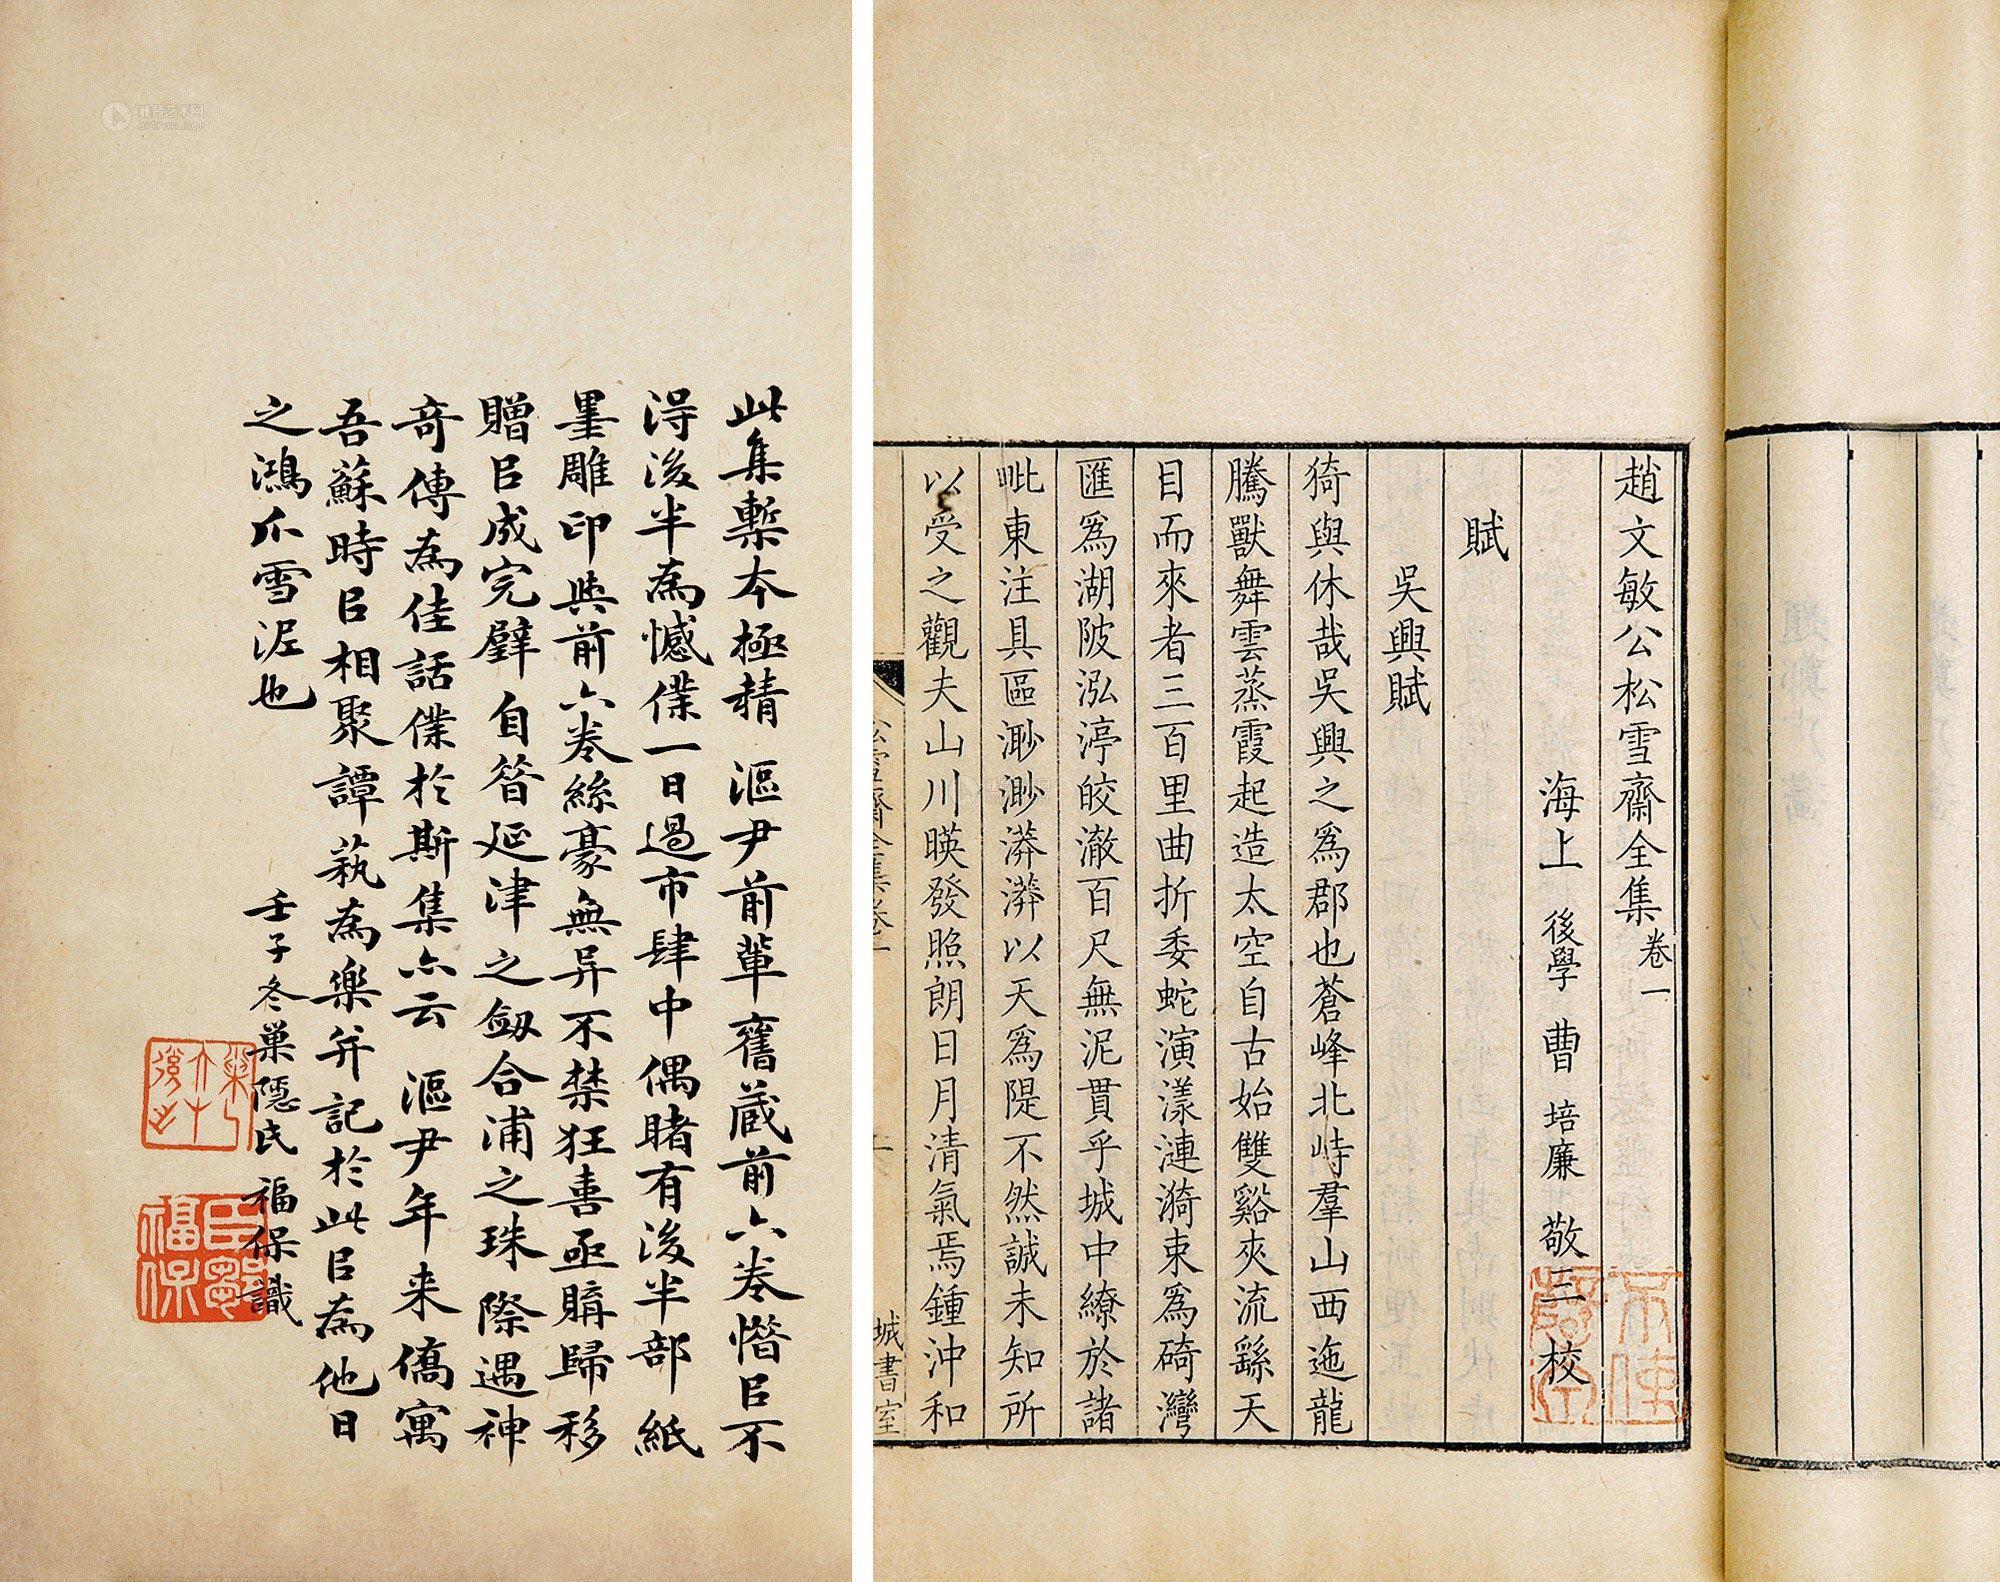 趙文敏公松雪齋全集卷一
海上 後學 曹 培廉 敬三 校
賦
吳興賦
猗與休哉吳興之爲郡也蒼峰北峙羣山西迤龍
騰獸舞雲蒸霞起造太空自古始雙谿夾流繇天
目而來者三百里曲折委蛇演漾漣漪束爲碕灣
匯爲湖陂泓渟皎澈百尺無泥貫乎城中繚於諸
毗東注具區渺渺漭漭以天爲隄不然誠未知所
以受之觀夫山川映發照朗日月清氣焉鍾沖和
松雪齋全集卷一
一
城書室
此集槧本極精 漚尹前輩舊藏前六卷惜㠯不
得後半為憾僕一日過市肆中偶睹有後半部紙
墨雕印與前六卷絲豪無异不禁狂喜亟購歸移
贈㠯成完璧自昝延津之劔合浦之珠際遇神
奇傳為佳話僕於斯集亦云 漚尹年来僑寓
吾蘇時㠯相聚譚蓺為樂并記於此㠯為他日
之鴻爪雪泥也
壬子冬巢隱氏福保識
福保
artron.net